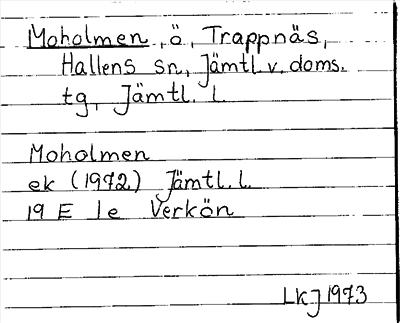 Moholmen, ö, Trappnäs,
Hallens sn, Jämtl. v. doms.
tg, Jämtl. l.
Moholmen
ek (1972) Jämtl. l.
19 E 1e Verkön
LKJ 1973